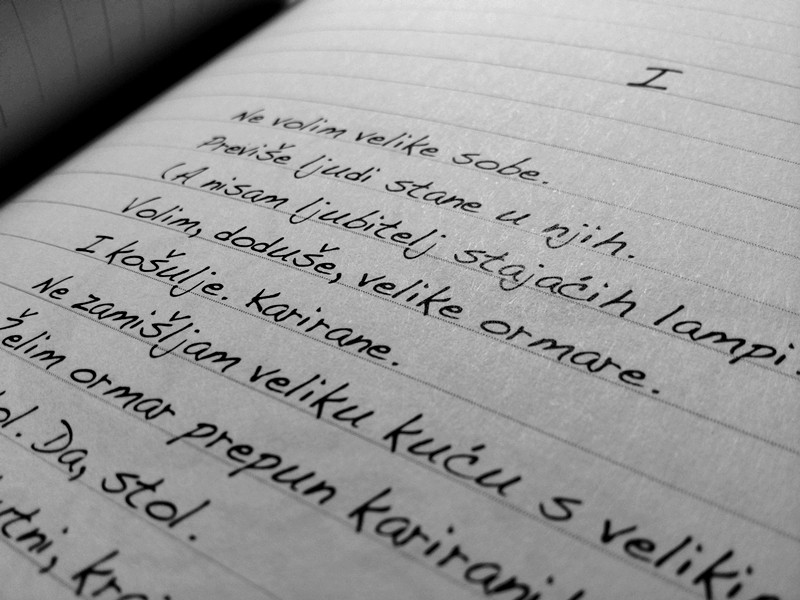 I
Ne volim velike sobe.
Previše ljudi stane u njih.
(A nisam ljubitelj stajaćih lampi.
Volim, doduše, velike ormare.
I košulje. Karirane.
Ne zamišljam veliku kuću s
Želim ormar prepun
Da, stol.